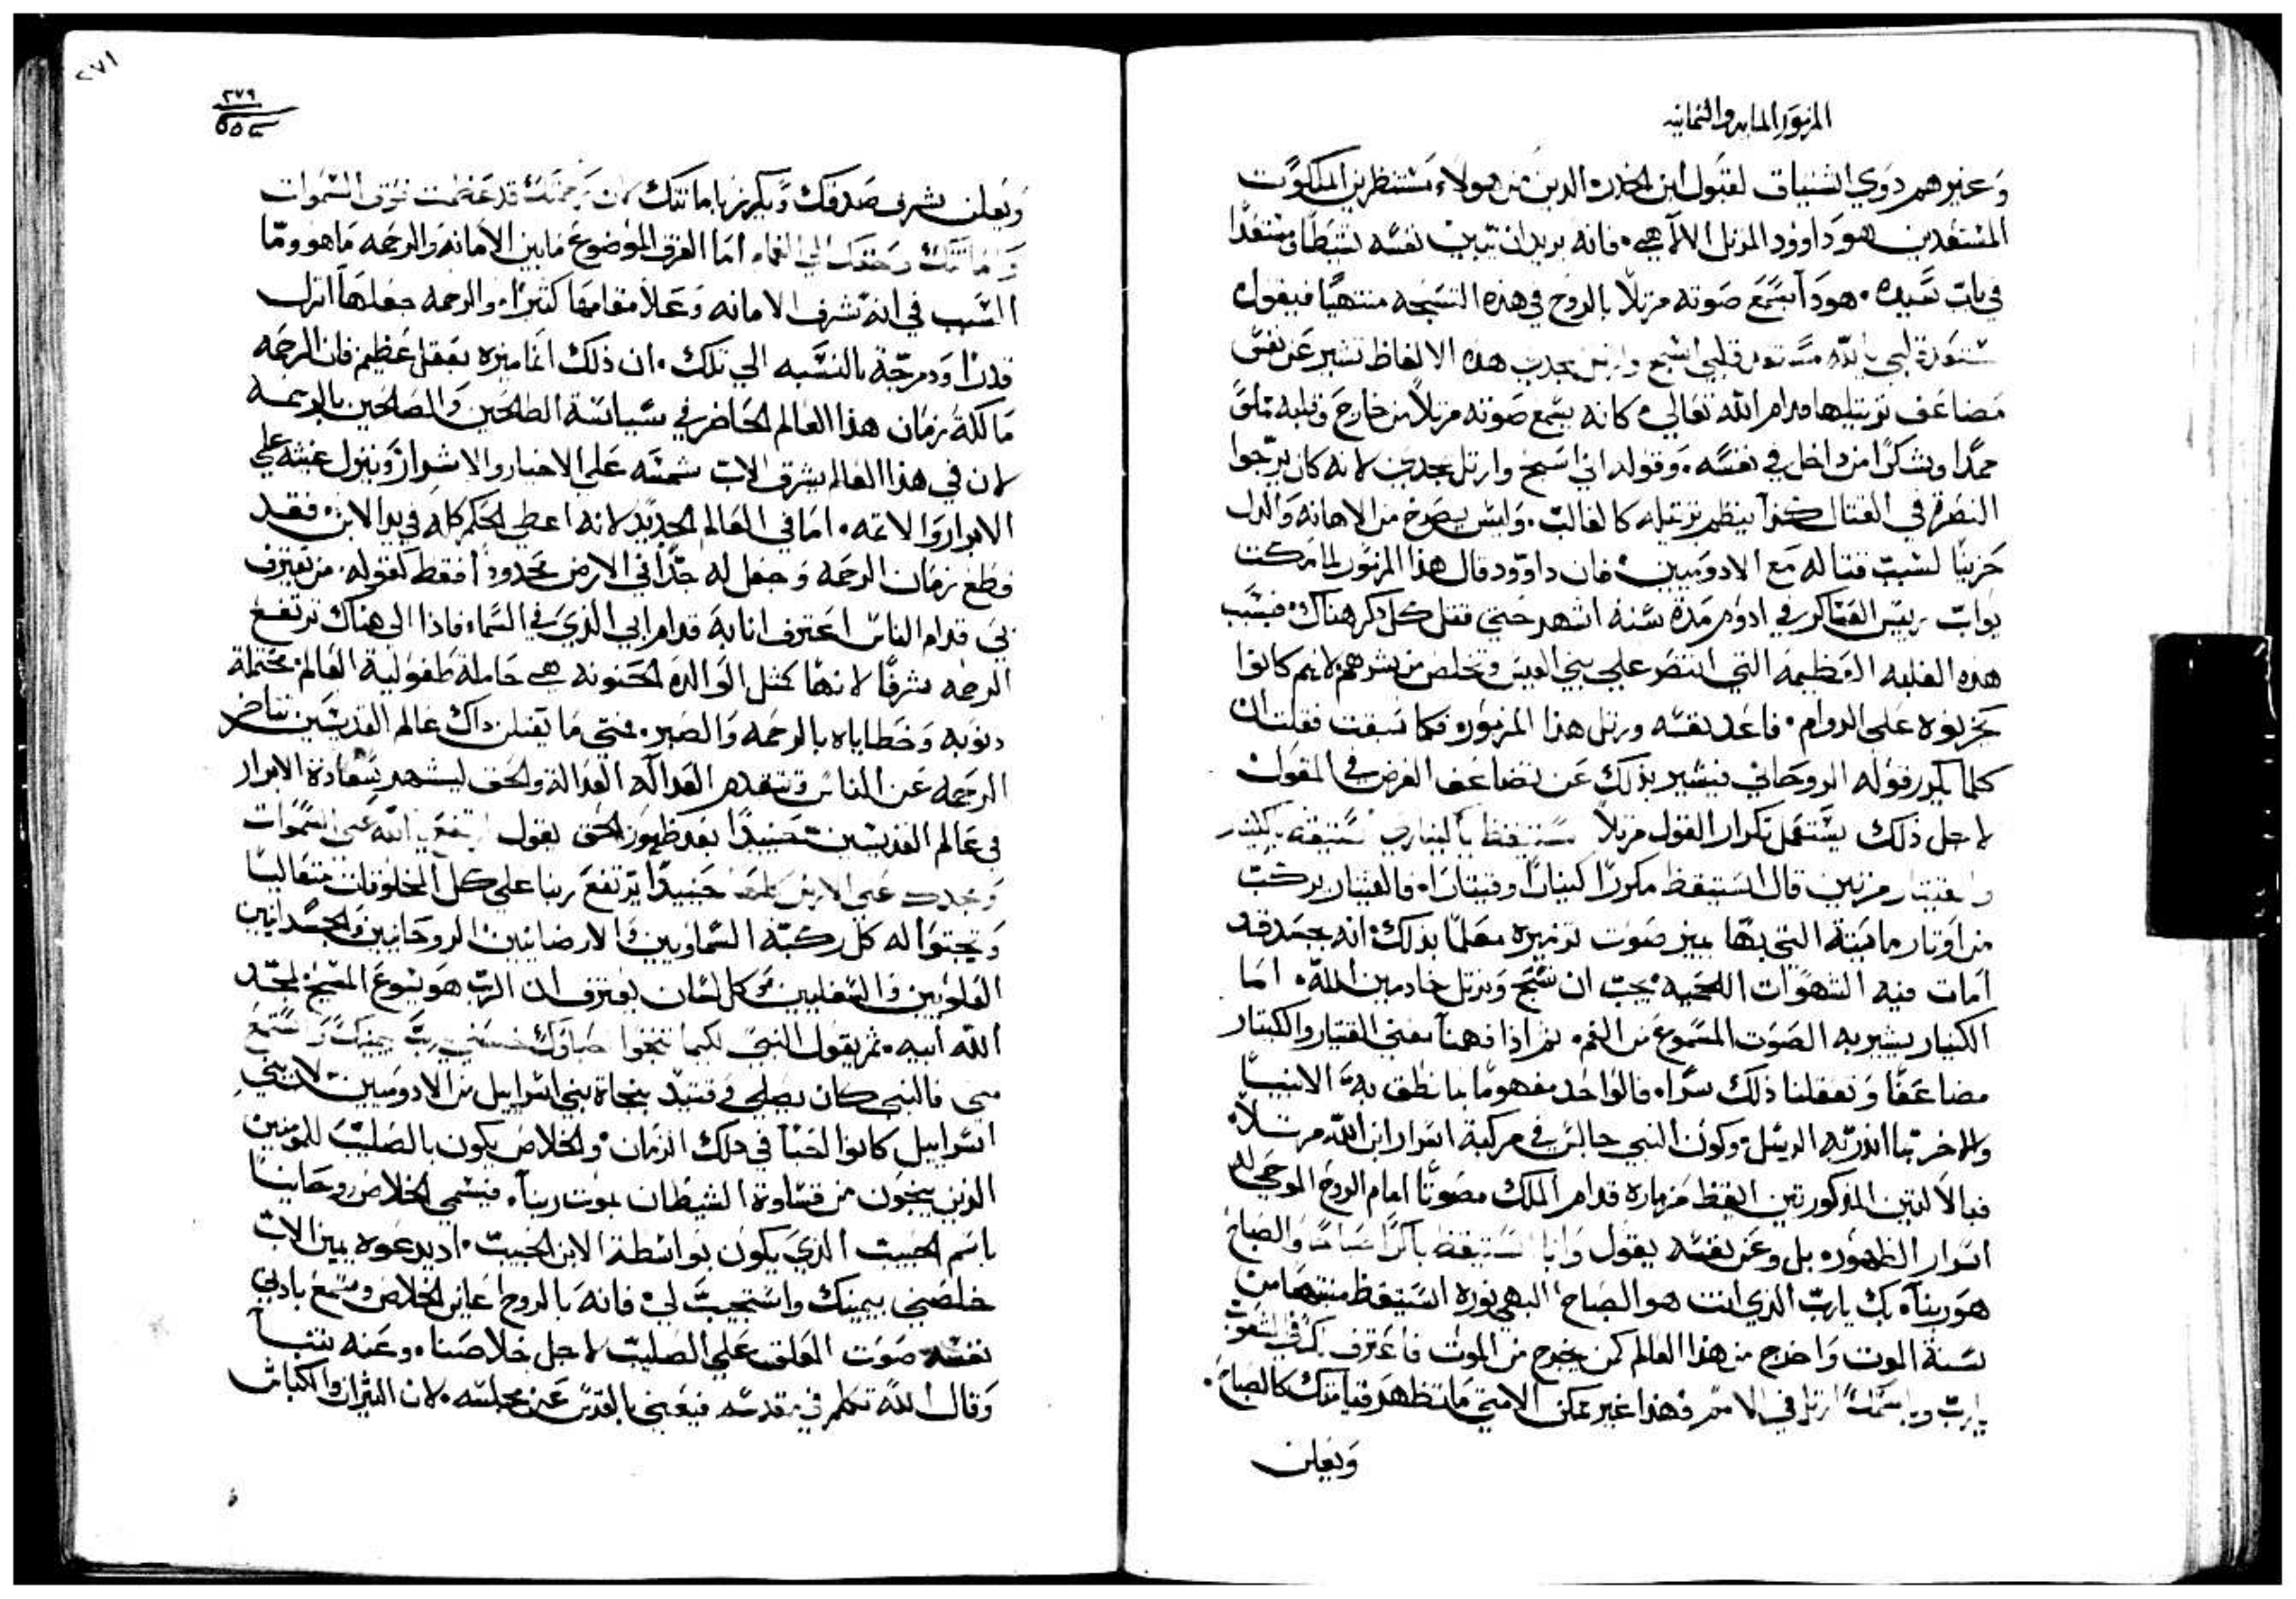 المزمور المايه والثمانيه
وغيرهم ذوي اشتياق لقبول ابن الخدر الدين من هولاء منتظرين الملكوت
المستعدين هو داوود المرتل الالآهي. فانه يريد ان يبين نفسه نشيطا مستعدا
في باب سيده. هوذا يسمع صوته مرتلا بالروح في هذه التسبحه منتهيا فيقول
مستعد قلبي يالله مستعد قلبي اسبح وارتل بمجدي هذه الالفاظ تشير عن
مضاعف ترتيلها قدام الله تعالي كانه يسمع صوته مرتلا من خارج وقلبه
حمدا وشكرا من داخل في نفسه. وقوله اني اسبح وارتل بمجدي لانه كان يرجوا
النصرة في القتال ينظم ترتيله كالغالب. وليس يصرخ من الاهانه والذل
حزينا لسبب قتاله مع الادوميين فان داوود قال هذا المزمور لما مكث
يواب رييس العساكر في ادوم مدة ستة اشهر حتي قتل كل ذكر هناك فبسبب
هذه الغلبه العظيمه التي انتصر علي بني العيس وتخلص من شرهم لانهم كانوا
يحزنوه علي الدوام. فاعد نفسه ورتل هذا المزمور فكما سبقت فقلت ان
كلما يكرر قوله الروحاني فيشير بذلك عن تضاعف الغرض في المقول
لاجل ذلك يستعمل تكرار القول مرتلا
قال استيقظ مكررا كينارا وقيثارا. فالقيثار يركب
من اوتار مايتة التي بها يميز صوت تزميره معلما بذلك انه بجسد قد
امات فيه الشهوات اللحميه يجب ان نسبح ونرتل خادمين الله. اما
الكنيار يشير به الصوت المسموع من الفم. ثم اذا فهمنا معني القيثار والكينار
مضاعفا وتعقلنا ذلك سرا. فالواحد مفهوما بما نطق به الانبيا
والاخر بما انذر به الرسل وكون النبي جالس في مركبة اسرار ابن الله مرتلا.
فبالالتين المذكورتين ايقظ مزماره قدام الملك مصوتا امام الروح الموحي له
اسرار الظهور. بل وعن نفسه يقول وانا استيقظ باكرا صباحا والصباح
هو ربنا. بك يارب الذي انت هو الصباح البهي نوره استيقظ منتبها من
سنة الموت واخرج من هذا العالم كمن يخرج من الموت فاعترف لك في الشعوب
يارب ارتل في الامم فهذا غير ممكن الا متي ما تظهر قيامتك كالصباح.
وتعلن
٢٧١
٢٧٩
وتعلن شرف صدقك وتكرز بامانتك لان رحمتك قد عظمت فوق السموات
وامانتك وحقك الي الغمام اما الفرق الموضوع مابين الامانه والرحمه ما هو وما
السبب في انه شرف الامانه وعلا مقامها كثيرا. والرحمه جعلها انزل
قدرا ودرجة بالنسبه الي تلك. ان ذلك انما ميزه بعقل عظيم فان الرحمه
مالكة زمان هذا العالم الحاضر في سياسة الطالحين والصالحين بالرحمه
لان في هذا العالم يشرق الاب شمسه علي الاخيار والاشرار وينزل غيثه علي
الابرار والاثمه. اما في العالم الجديد لانه اعطي الحكم كله في يد الابن فقد
قطع زمان الرحمه وجعل له حدا في الارض محدودا فقط كقوله. من يعترف
بي قدام الناس اعترف انا به قدام ابي الذي في السماء فاذا الي هناك ترتفع
الرحمه شرفا لانها كمثل الوالده الحنونه هي حاملة طفولية العالم محتملة
ذنوبه وخطاياه بالرحمه والصبر. فمتي ما يعلن ذاك عالم القديسين تتاخر
الرحمه عن الناس وتتقدم العداله العدالة والحق ليشهر سعادة الابرار
في عالم القديسين حينيذا بعد ظهور الحق يقول ارتفع يالله علي السموات
ومجدك علي الارض كلها حينيذا يرتفع ربنا علي كل المخلوقات متعاليا
وتجثوا له كل ركبة السماويين والارضانيين الروحانيين والجسدانيين
العلويين والسفليين وكل لسان يعترف ان الرب هو يسوع المسيح لمجد
الله ابيه. ثم يقول النبي لكيما تنجوا خلصني يمينك واستمع
مني فالنبي كان يصلي وقتيذ بنجاة بني اسراييل من الادوميين لان بني
اسراييل كانوا احبا في ذلك الزمان والخلاص يكون بالصليب للمومنين
الذين ينجون من قساوة الشيطان بموت ربنا. فيسمي الخلاص روحانيا
باسم الحبيب الذي يكون بواسطة الابن الحبيب. اذ يدعوه يمين الاب
خلصني بيمينك واستجيب لي فانه بالروح اعاين الخلاص وسمع باذني
نفسه صوت المعلق علي الصليب لاجل خلاصنا. وعنه تنبا
وقال الله تكلم في مقدسه فيعني بالقدس عن مجلسه. لان الثيران والكباش